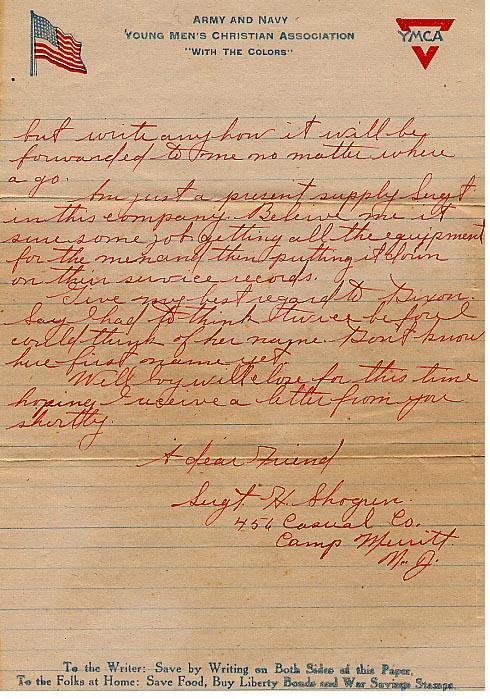 ARMY AND NAVY
YOUNG MEN'S CHRISTIAN ASSOCIATION
"WITH THE COLORS"
YMCA
but write anyhow it will be
forwarded to me no matter where
a go.
Im just a present supply Sergt
in this company. Beleive me its
sure some job getting all the equipment
for the men and then putting it down
on their service records.
Give my best regard to Dixon.
Say I had to think twice before I
could think of her name. Don't know
hue first name yet.
Well will close for this time
hoping I receive a letter from you
shortly.
A dear Friend
Sergt. H. Shogren.
456 Casual Co.
Camp Merritt
N. J.
To the Writer: Save by Writing on Both Sides of this Paper.
To the Folks at Home: Save Food, Buy Liberty Bonds and War Savings Stamps